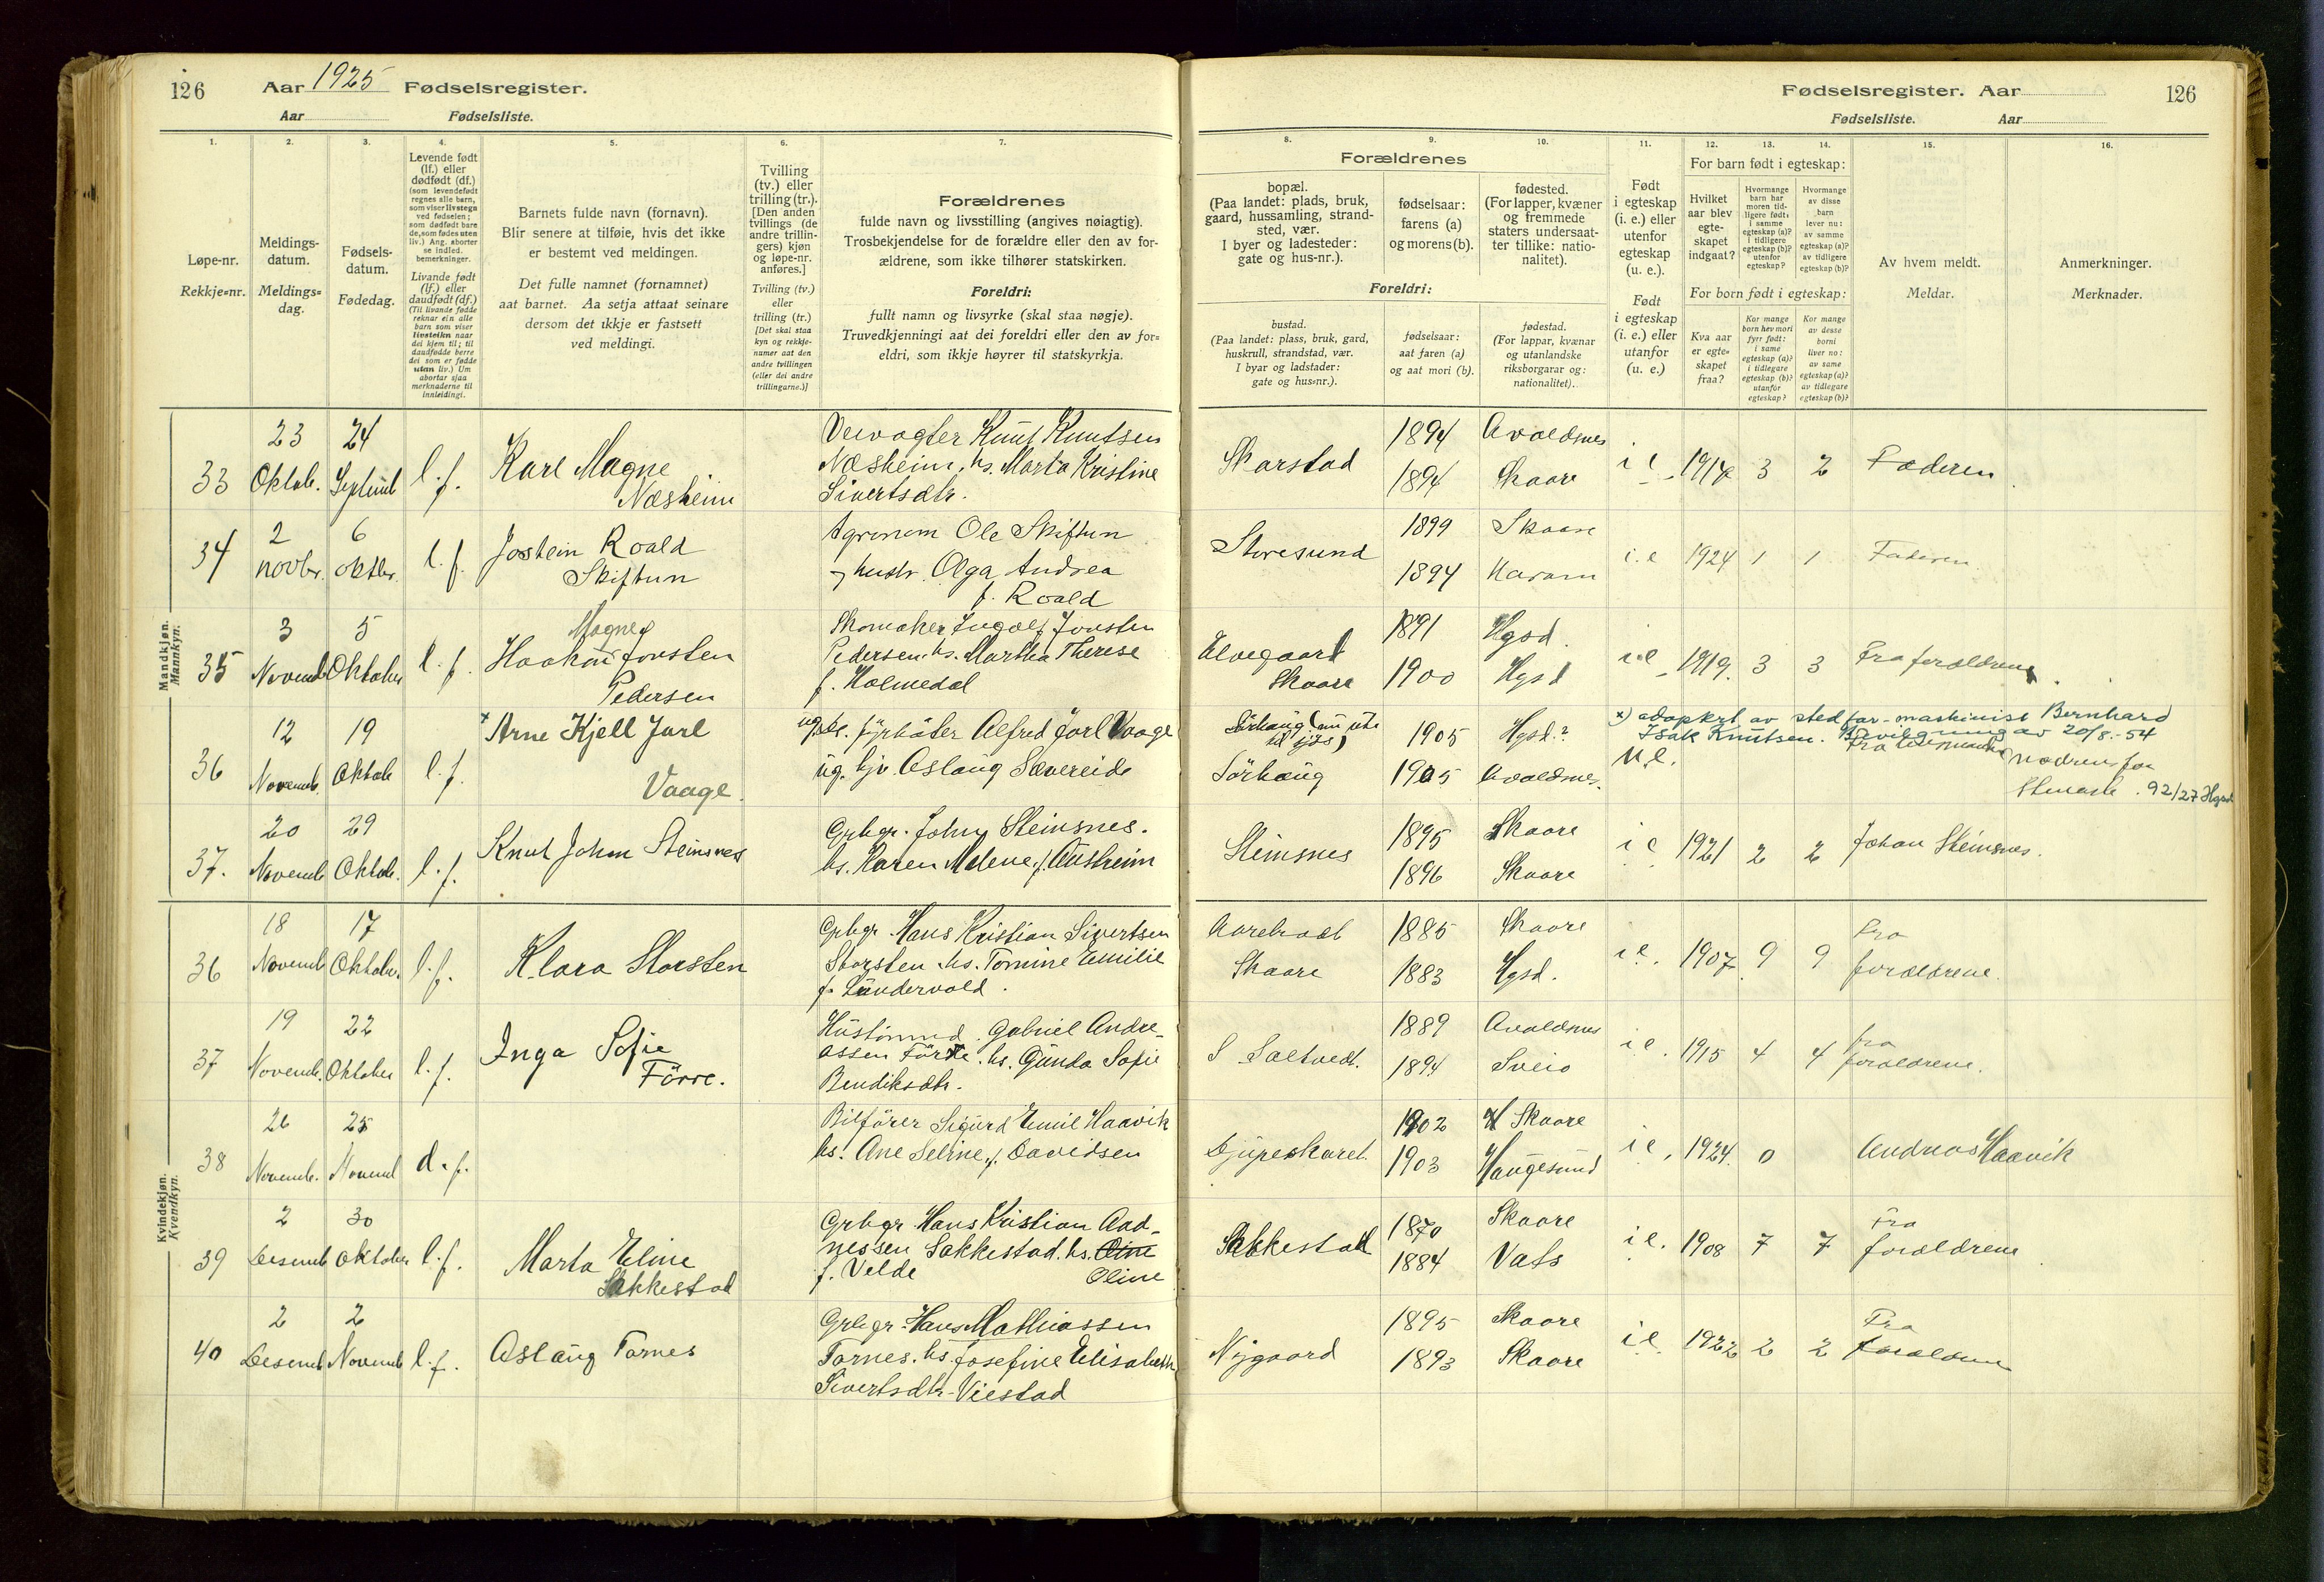 126 Aar 1925 Fødselsregister.
Aar Fødselsliste.
Fødselsregister. Aar 126
Fødselsliste. Aar
1. 2. 3. 4. 5. 6. 7. 8. 9. 10. 11. 12. 13. 14. 15. 16.
Løpe-nr.
Rekkje=nr.
Meldings-
datum.
Meldings=
dag.
Fødsels-
datum.
Fødedag.
Levende født
(lf.) eller
dødfødt (df.)
(som levendefødt
regnes alle barn,
som viser livstegn
ved fødselen;
som dødfødt bare
de, som fødes uten
liv.) Ang. aborter
se indled.
bemerkninger.
Livande født
(lf.) eller
daudfødt (df.)
(Til livande fødde
reknar ein alle
born som viser
livsteikn naar
dei kjem til; til
daudfødde berre
dei som er fødde
utan liv.) Um
abortar sjaa
merknaderne til
innleidingi.
Barnets fulde navn (fornavn).
Blir senere at tilføie, hvis det ikke
er bestemt ved meldingen.
Det fulle namnet (fornamnet)
aat barnet. Aa setja attaat seinare
dersom det ikkje er fastsett
ved meldingi.
Tvilling
(tv.) eller
trilling (tr.).
[Den anden
tvillings (de
andre trillin-
gers) kjøn
og løpe-nr.
anføres.]
Tvilling (tv.)
eller
trilling (tr.)
[Det skal staa
kyn og rekkje-
numer aat den
andre tvillingen
(eller dei andre
trillingarne.)]
Forældrenes
fulde navn og livsstilling (angives nøiagtig).
Trosbekjendelse for de forældre eller den av for-
ældrene, som ikke tilhører statskirken.
Foreldri:
fullt namn og livsyrke (skal staa nøgje).
Truvedkjenningi aat dei foreldri eller den av for=
eldri, som ikkje høyrer til statskyrkja.
Forældrenes
bopæl.
(Paa landet: plads, bruk,
gaard, hussamling, strand-
sted, vær.
I byer og ladesteder:
gate og hus-nr.).
fødselsaar:
farens (a)
og morens (b).
fødested.
(For lapper, kvæner
og fremmede
staters undersaat-
ter tillike: natio-
nalitet).
Foreldri:
bustad.
(Paa landet: plass, bruk, gard,
huskrull, strandstad, vær.
I byar og ladstader:
gate og hus=nr.).
fødselsaar:
aat faren (a)
og aat mori (b).
fødestad.
(For lappar, kvænar
og utanlandske
riksborgarar og:
nationalitet).
Født
i egteskap
(i. e.) eller
utenfor
egteskap
(u. e.).
Født
i egteskap
(i. e.) eller
utanfor
(u. e.)
For barn født i egteskap:
Hvilket
aar blev
egte-
skapet
indgaat?
Hvormange
barn har
moren tid-
ligere født:
i samme
egteskap (a)?
i tidligere
egteskap (b)?
utenfor
egteskap?
Hvormange
av disse
barn
lever nu:
av samme
egteskap (a)?
av tidligere
egteskap (b)?
For born født i egteskap:
Kva aar
er egte=
skapet
fraa?
Kor mange
born hev mori
fyrr født:
i same
egteskap (a)?
i tidlegare
egteskap (b)?
utanfor
egteskap?
Kor mange
av desse
borni
liver no:
av same
egteskap (a)?
av tidlegare
egteskap (b)?
Av hvem meldt.
Meldar.
Anmerkninger.
Merknader.
Mandkjøn.
Mannkyn.
33 23 Oktob. 24 Septemb l. f. Karl Magne
Næsheim
Veivogter Knut Knutsen
Næsheim. hs. Marta Kristine
Sivertsdtr.
Skarstad 1894 Avaldsnes
1894 Skaare i e 1917 3 2 Faderen
34 2 novbr. 6 oktbr. l. f. Jostein Roald
Skiftun
Agronom Ole Skiftun
hustr. Olga Andrea
f. Roald
Storesund 1899 Skaare
1894 Haram i. e 1924 1 1 Faderen.
35 3 Novemb 5 Oktober l. f. Magne
Haakon Jonsten
Pedersen
Skomaker Ingolf Jonsten
Pedersen. hs. Martha Therese
f. Holmedal
Elvegaard
Skaare 1891 Hgsd.
1900 Hgsd i. e 1919. 3 3 Fra forældrene
36 12 Novemb. 19 Oktob l. f. x Arne Kjell Jarl
Vaage.
ug. fyrbøter Alfred Jarl Vaage
ug. kjv. Aslaug Sævereide
Sørhaug (nu ute
til sjøs)
Sørhaug 1905 Hgsd.?
1905 Avaldsnes. u. e.
x) adoptert av stedfar-maskinist Bernhard
Isak Knutsen. Bevilgning av 20/8-54
92/27 Hgsd
37. 20 Novemb 29 Oktob. l. f. Knut Johan Steinsnes
Grbgr. Johan Steinsnes.
hs. Karen Malene, f. Austreim
Steinsnes 1895 Skaare
1896 Skaare i e 1921 2 2 Johan Steinsnes.
Kvindekjøn.
Kvendkyn.
36 18 Novemb 17 Oktober. l. f. Klara Storsten
Grbgr. Hans Kristian Sivertsen
Storsten. hs. Tomine Emilie
f. Løndervold.
Skaare 1885 Skaare
1883 Hgsd. i e. 1907 9 9 Fra
forældrene.
37 19 Novemb. 22 Oktober l. f. Inga Sofie
Førre.
Hustømmd. Gabriel Andre-
assen Førre. hs. Gunda Sofie
Bendiksdtr.
S Saltvedt. 1889 Avaldsnes
1894 Sveio i e. 1915 4 4 fra
forældrene.
38 26 Novemb. 25 Novemb d. f.
Bilfører Sigurd Emil Haavik
hs. Ane Seline, f. Davidsen
Djupeskaret. 1902 Skaare
1903 Haugesund i e. 1924. 0 Andreas Haavik
39 2 Desemb 30 Oktober l. f. Marta Eline
Sakkestad
Grbgr. Hans Kristian And-
nessen Sakkestad. hs.
f. Velde Oline
Sakkestad 1870 Skaare
1884 Vats i e. 1908 7 7 Fra
forældrene
40 2 Desemb 2 Novemb l. f. Aslaug Tornes
Grbgr. Hans Mathiassen
Tornes. hs. Josefine Elisabeth
Sivertsdtr. Viestad
Nygaard 1895 Skaare
1893 Skaare i e. 1922 2 2 Fra
forældrene